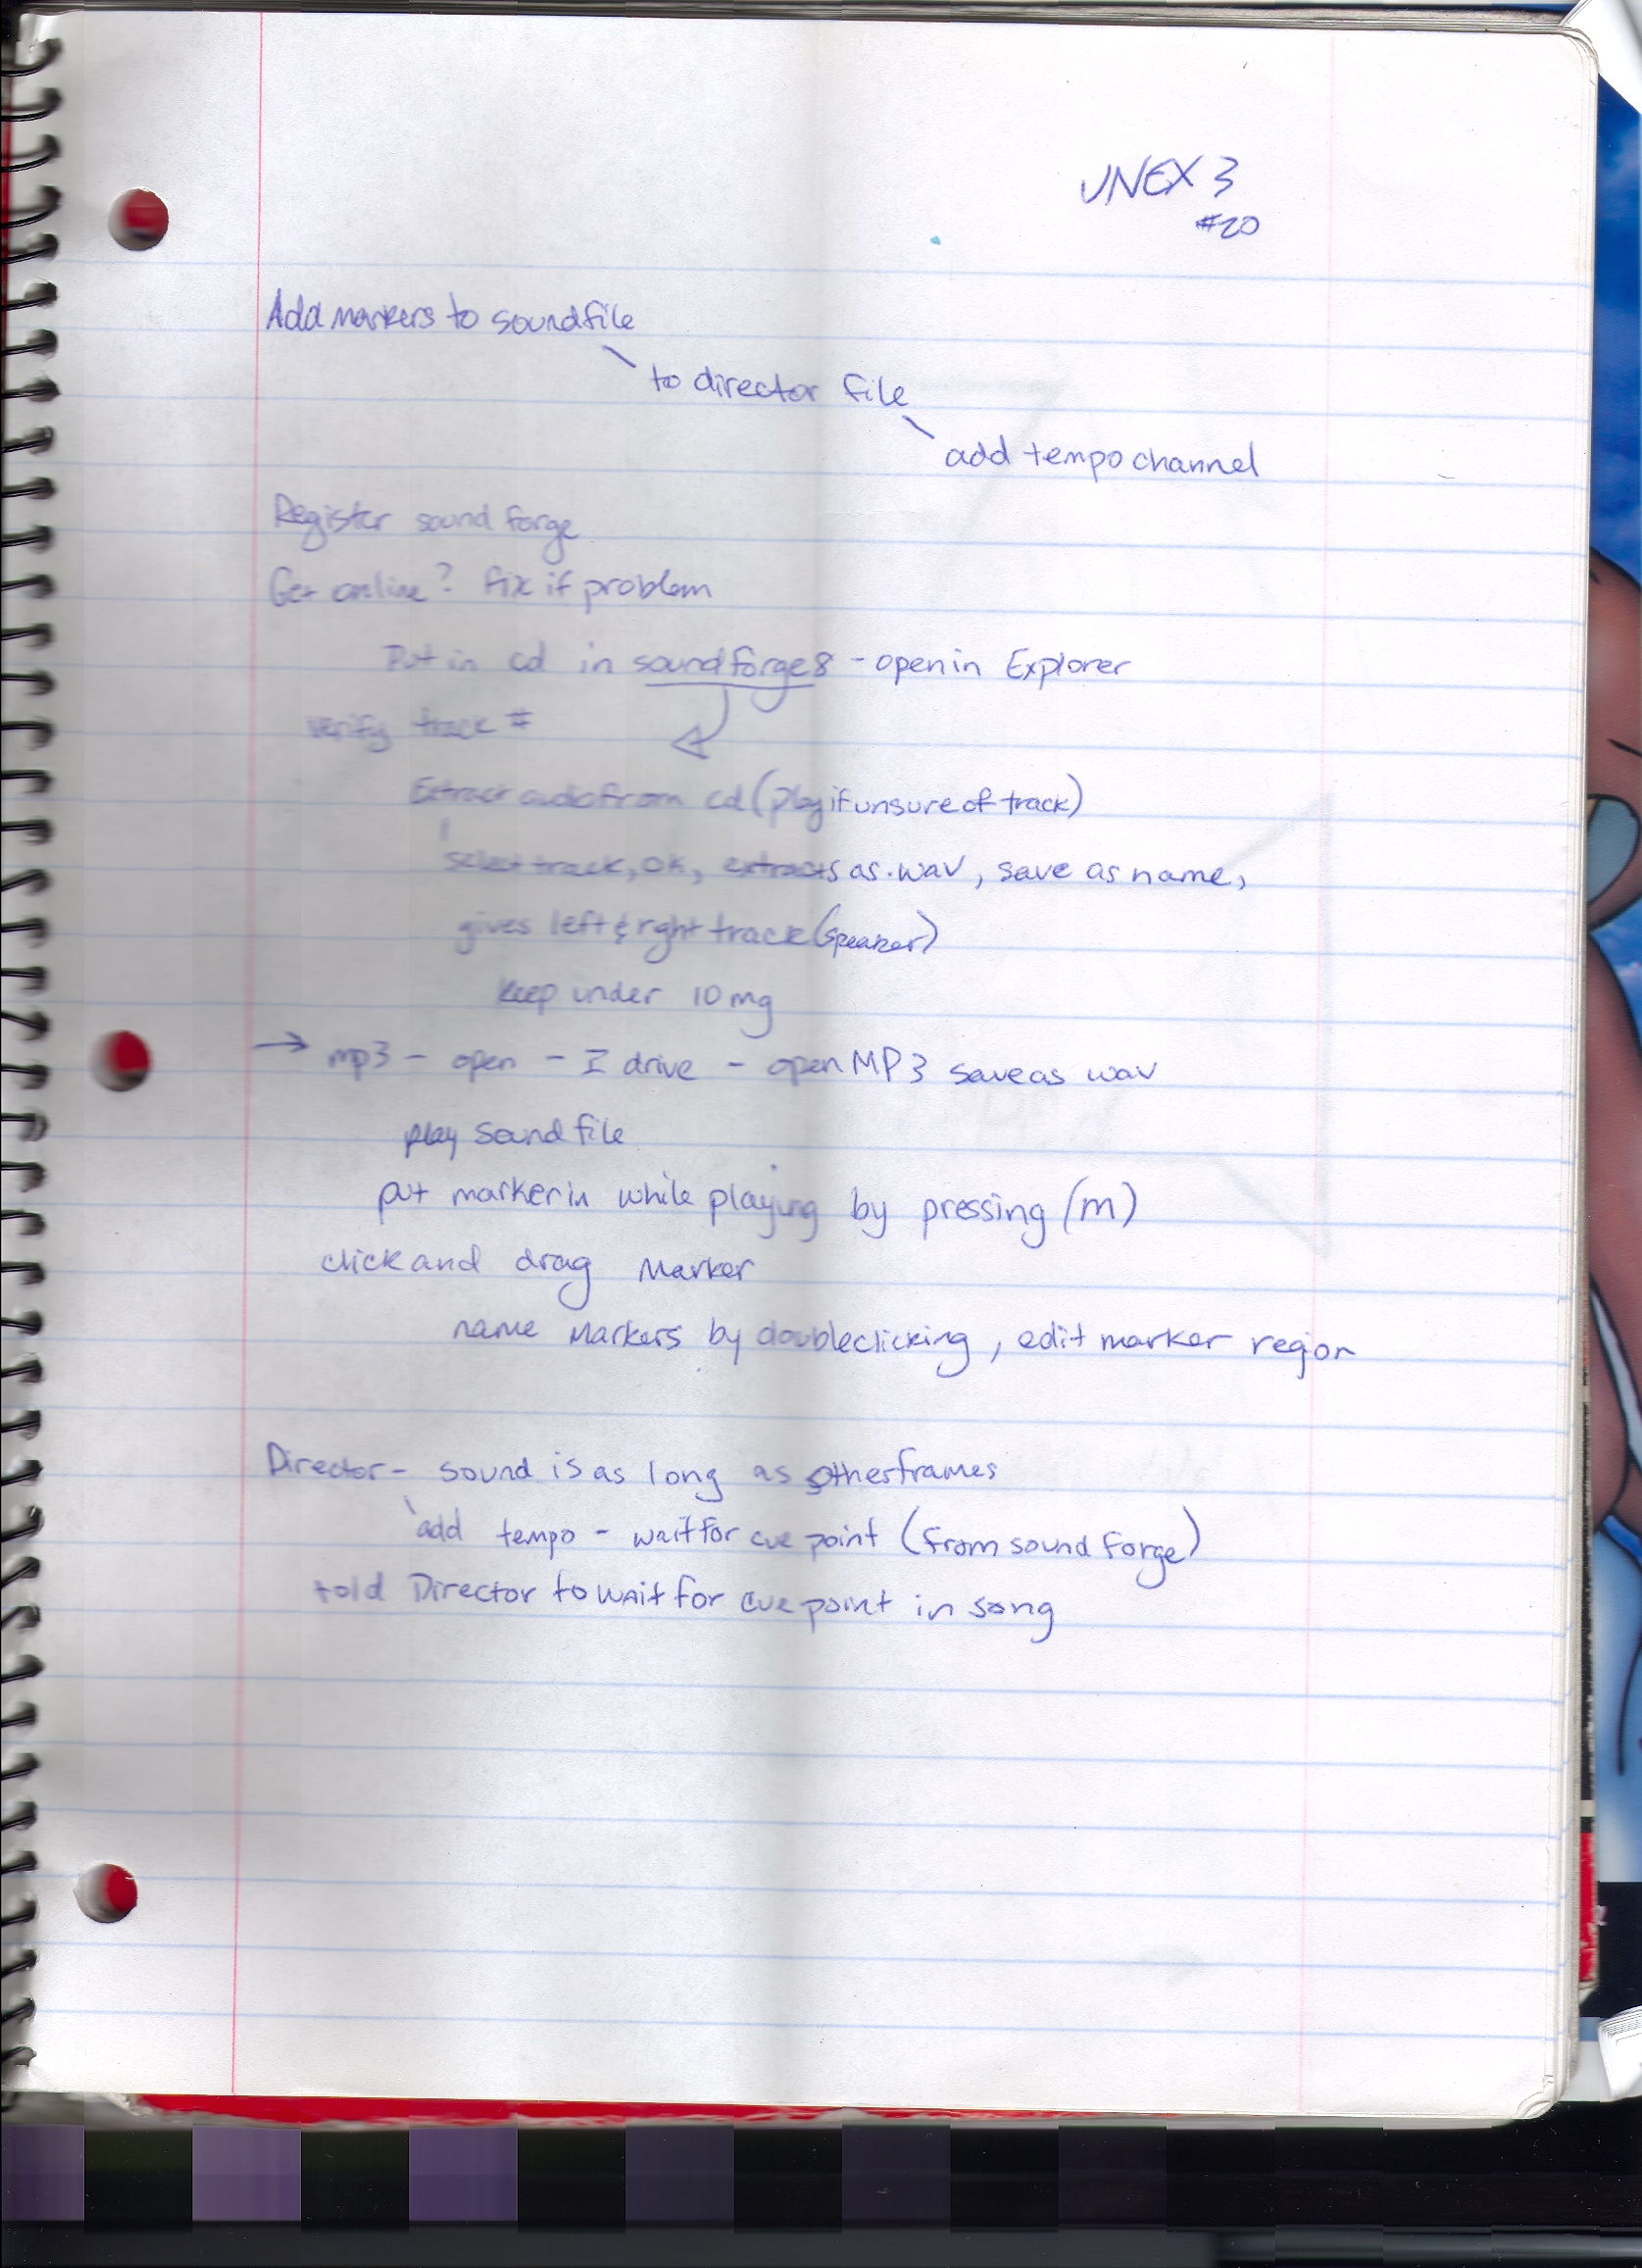 UNEX 3
#20
Add markers to soundfile
to director file
add tempo channel
Register sound forge
Get online? fix if problem
Put in cd in soundforge8 - open in Explorer
verify track #
Extract audio from cd (play if unsure of track)
select track, ok, extracts as .wav, save as name,
gives left & rght track (speaker)
keep under 10 mg
→ mp3 - open - I drive - open MP3 save as wav
play sound file
put marker in while playing by pressing (m)
click and drag Marker
name Markers by doubleclicking, edit marker region
Director - sound is as long as other frames
add tempo - wait for cue point (from sound forge)
told Director to wait for cue point in song